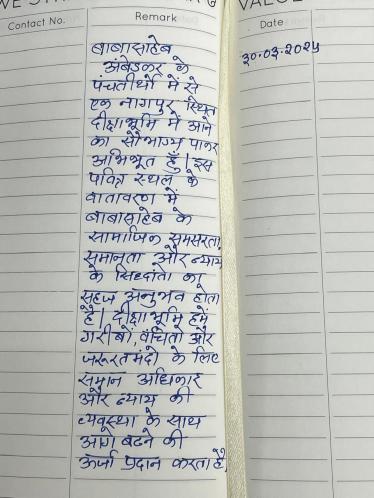 Contact No.
Remark
Date
बाबासाहेब
अंबेडकर के
पंचतीर्थों में से
एक नागपुर स्थित
दीक्षाभूमि में आने
का सौभाग्य पाकर
अभिभूत हूँ। इस
पवित्र स्थल के
वातावरण में
बाबासाहेब के
सामाजिक समरसता,
समानता और न्याय
के सिद्धांतों का
सहज अनुभव होता
है। दीक्षाभूमि हमें
गरीबों, वंचितों और
जरूरतमंदों के लिए
समान अधिकार
और न्याय की
व्यवस्था के साथ
आगे बढ़ने की
ऊर्जा प्रदान करता है
३०.०३.२०२५